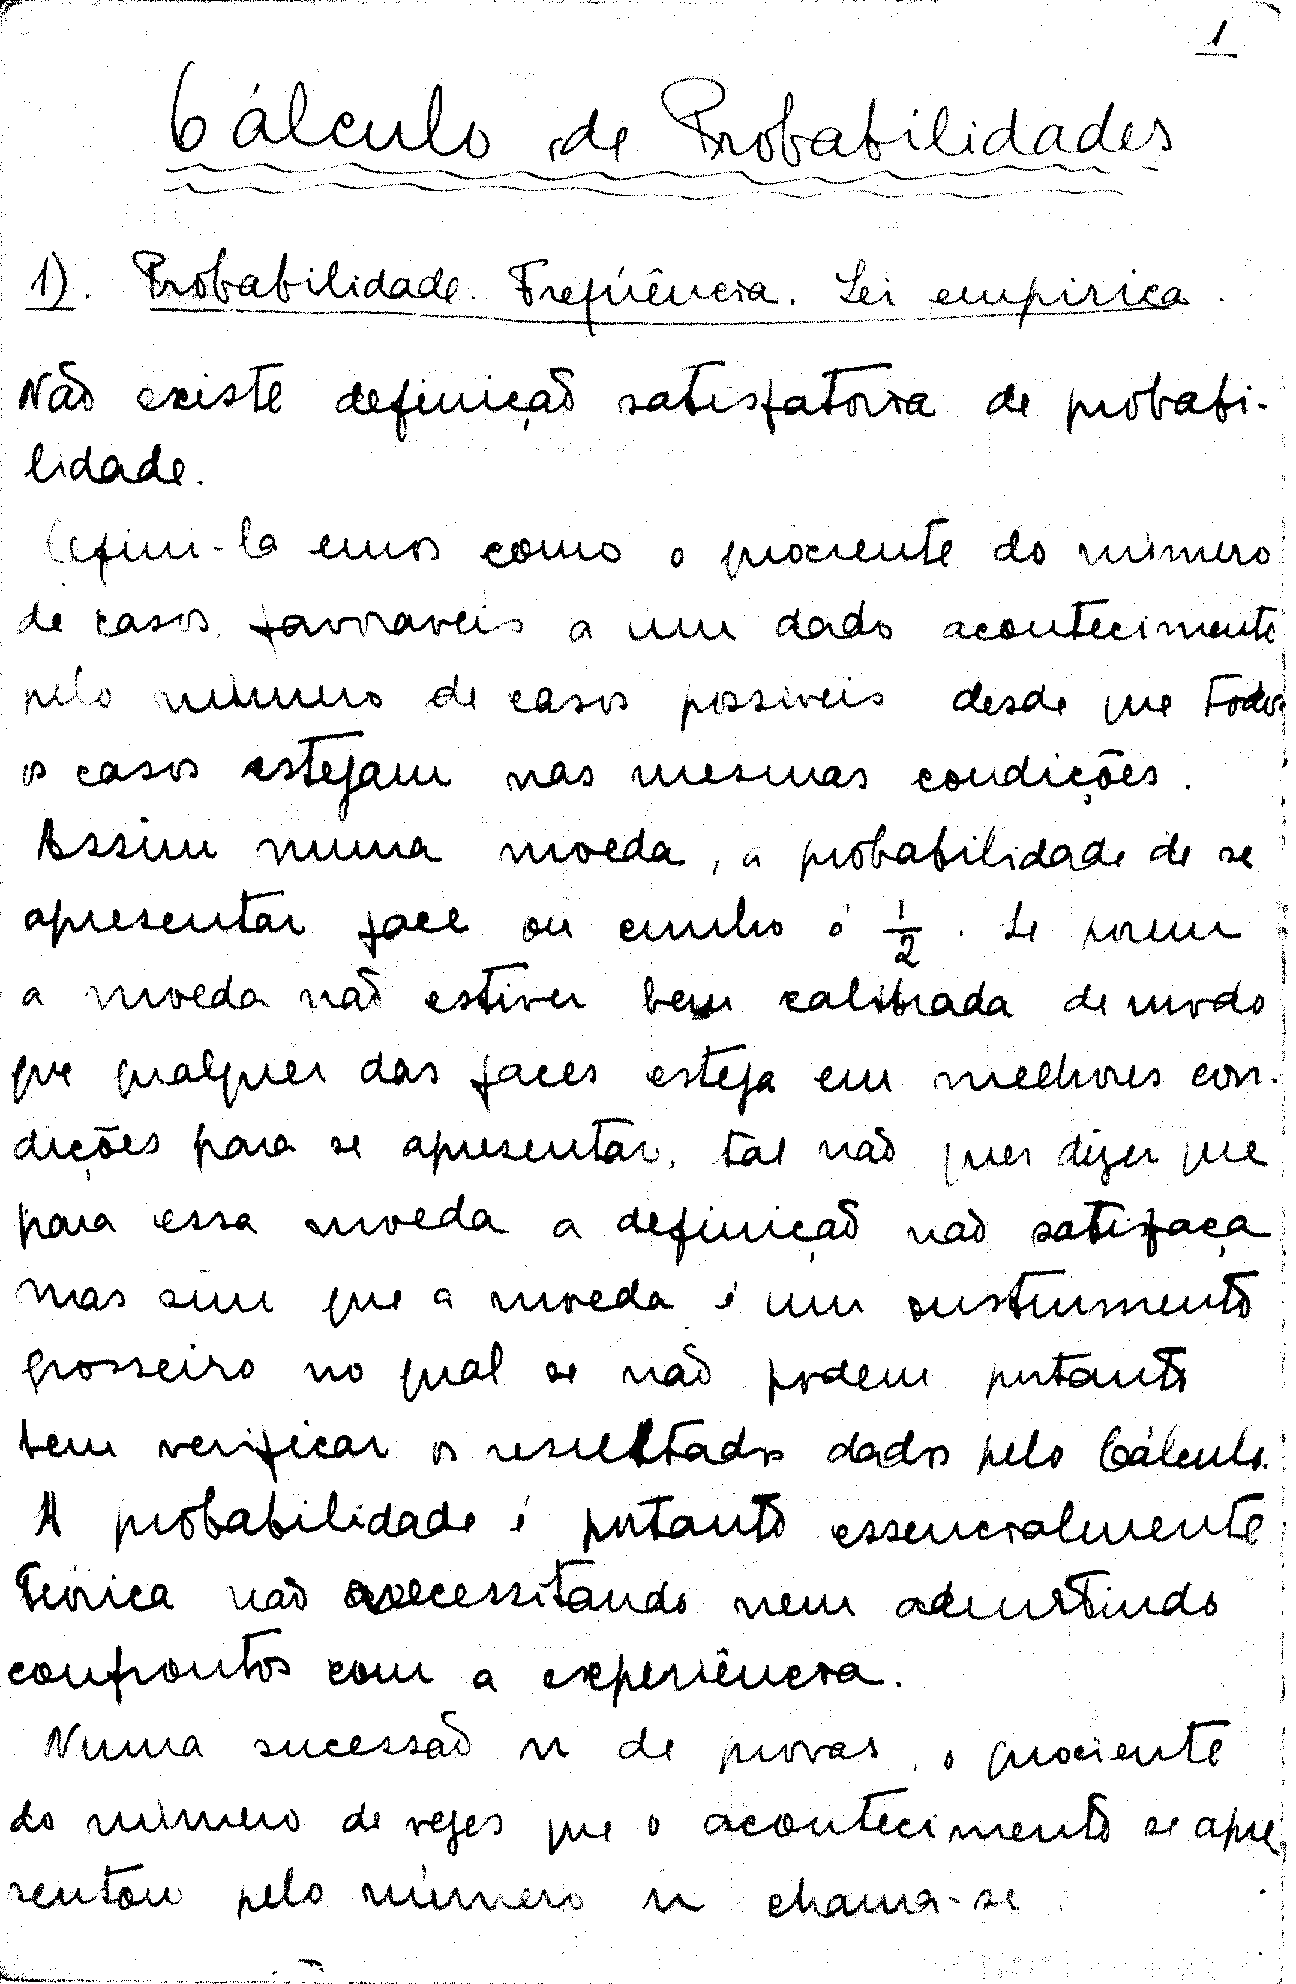 1
Cálculo de Probabilidades
1). Probabilidade. Freqüência. Lei empirica.
Não existe definição satisfatoria de probabi-
lidade.
Defini-la emos como o quociente do número
de casos favoraveis a um dado acontecimento
pelo número de casos possiveis desde que todos
os casos estejam nas mesmas condições.
Assim numa moeda, a probabilidade de se
apresentar face ou cunho é 1/2. Se porem
a moeda não estiver bem calibrada de modo
que qualquer das faces esteja em melhores con-
dições para se apresentar, tal não quer dizer que
para essa moeda a definição não satisfaça
mas sim que a moeda é um instrumento
grosseiro no qual se não podem portanto
bem verificar os resultados dados pelo Cálculo.
A probabilidade é portanto essencialmente
teórica não necessitando nem admitindo
confrontos com a experiência.
Numa sucessão n de provas, o quociente
do número de vezes que o acontecimento se apre
sentou pelo número n chama-se